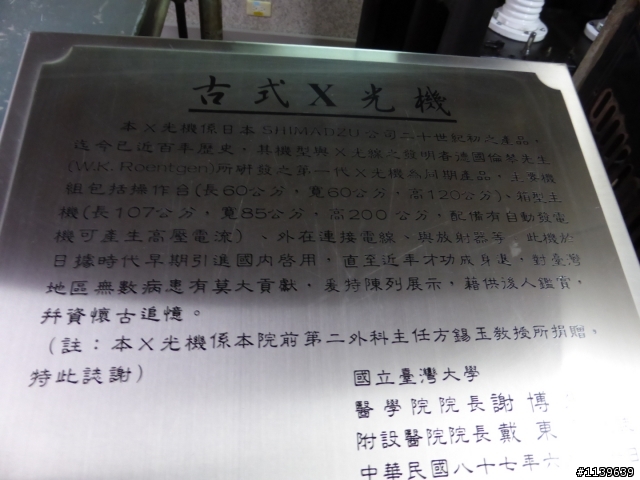 古式X光機
本X光機係日本SHIMADZU公司二十世紀初之產品，
迄今已近百年歷史，其機型與X光線之發明者德國倫琴先生
(W.K. Roentgen)所研發之第一代X光機為同期產品，主要機
組包括操作台(長60公分，寬60公分，高120公分)、箱型主
機(長107公分，寬85公分，高200公分，配備有自動發電
機可產生高壓電流)、外在連接電線、與放射器等。此機於
日據時代早期引進國內啓用，直至近年才功成身退，對臺灣
地區無數病患有莫大貢獻，爰特陳列展示，藉供後人鑑賞，
并資懷古追憶。
(註：本X光機係本院前第二外科主任方錫玉教授所捐贈，
特此誌謝)
國立臺灣大學
醫學院院長謝博
附設醫院院長戴東
中華民國八十七年六
#1139639